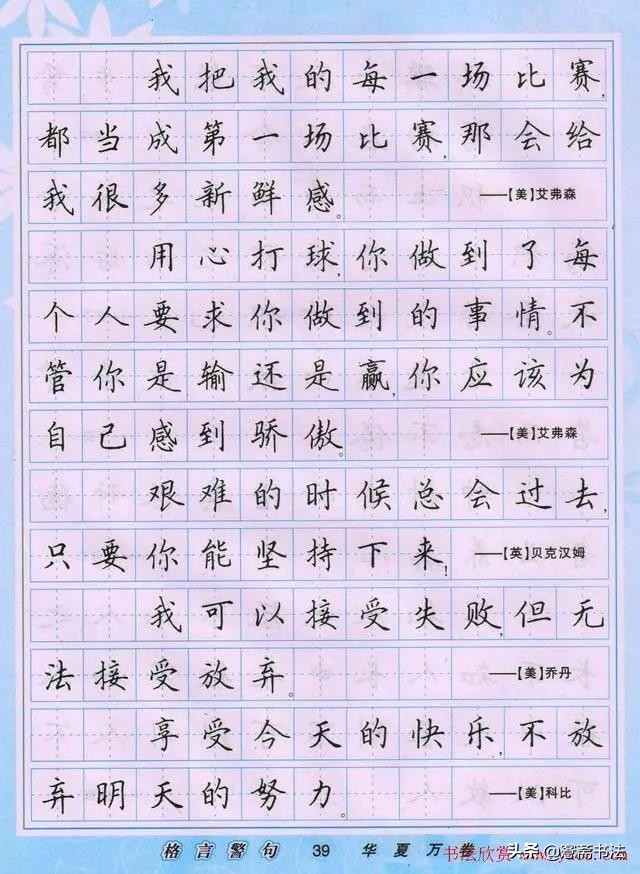 我把我的每一场比赛,
都当成第一场比赛,那会给
我很多新鲜感。——【美】艾弗森
用心打球,你做到了每
个人要求你做到的事情。不
管你是输还是赢,你应该为
自己感到骄傲。——【美】艾弗森
艰难的时候总会过去,
只要你能坚持下来!——【英】贝克汉姆
我可以接受失败,但无
法接受放弃。——【美】乔丹
享受今天的快乐,不放
弃明天的努力。——【美】科比
格言警句 39 华夏万卷
书法欣赏
头条@鸳斋书法